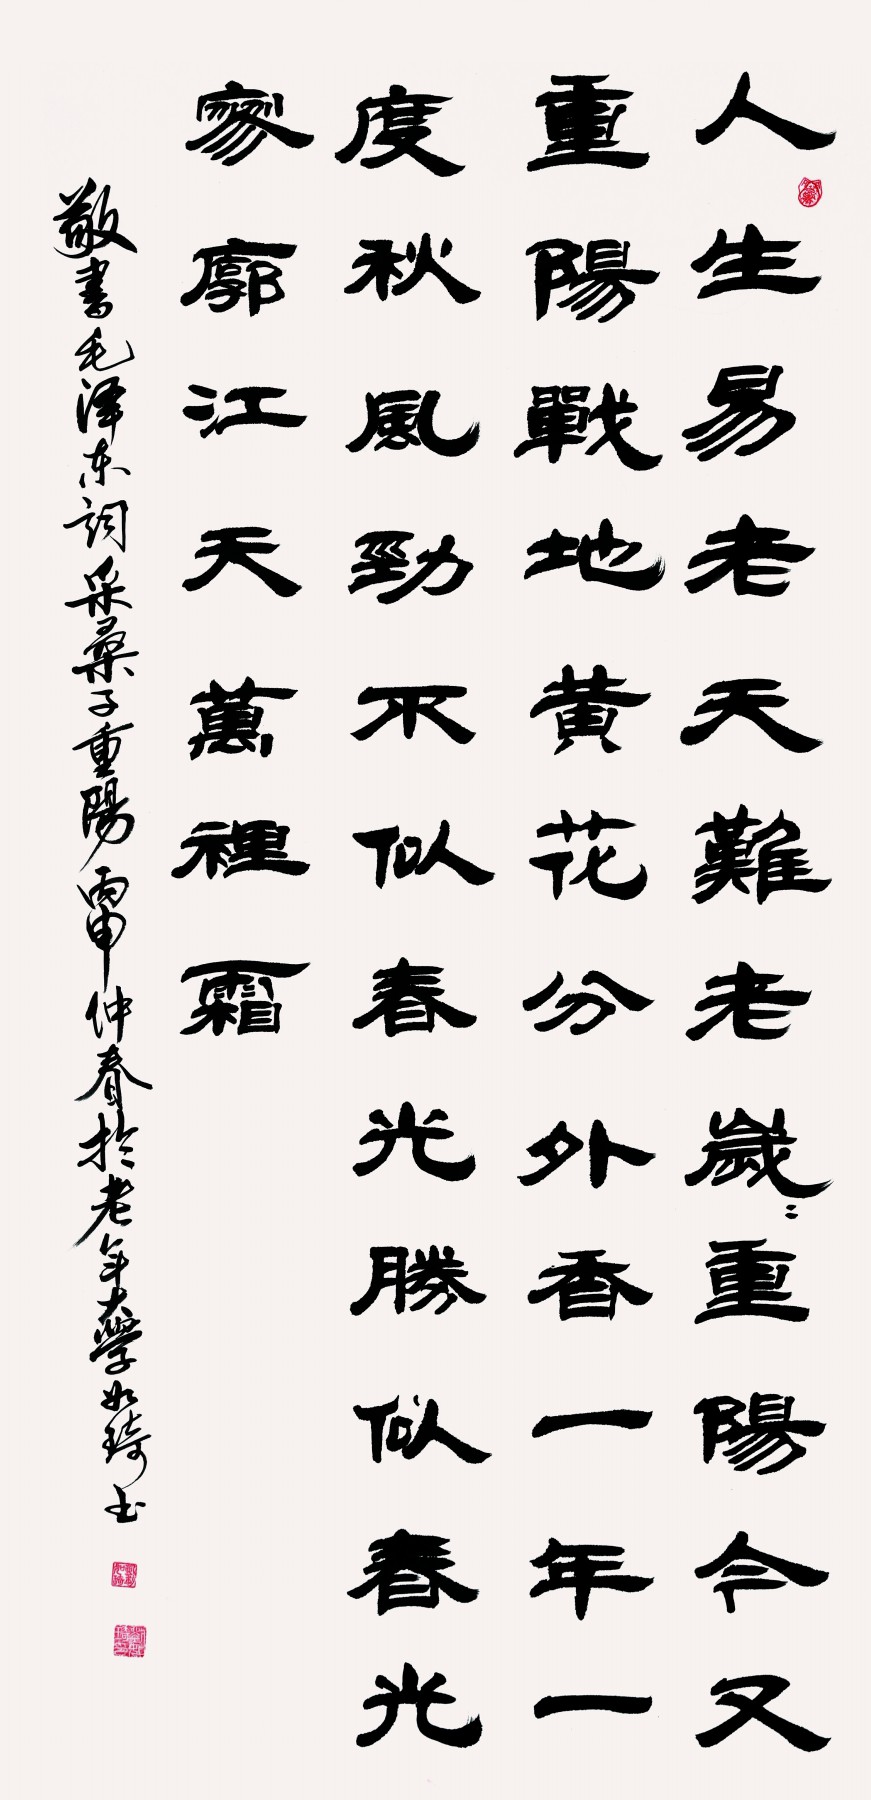 人生易老天難老歲〻重陽今又
重陽戰地黄花分外香一年一
度秋風勁不似春光勝似春光
寥廓江天萬裡霜
敬書毛泽东詞采桑子重陽丙申仲春於老年大學如琦书